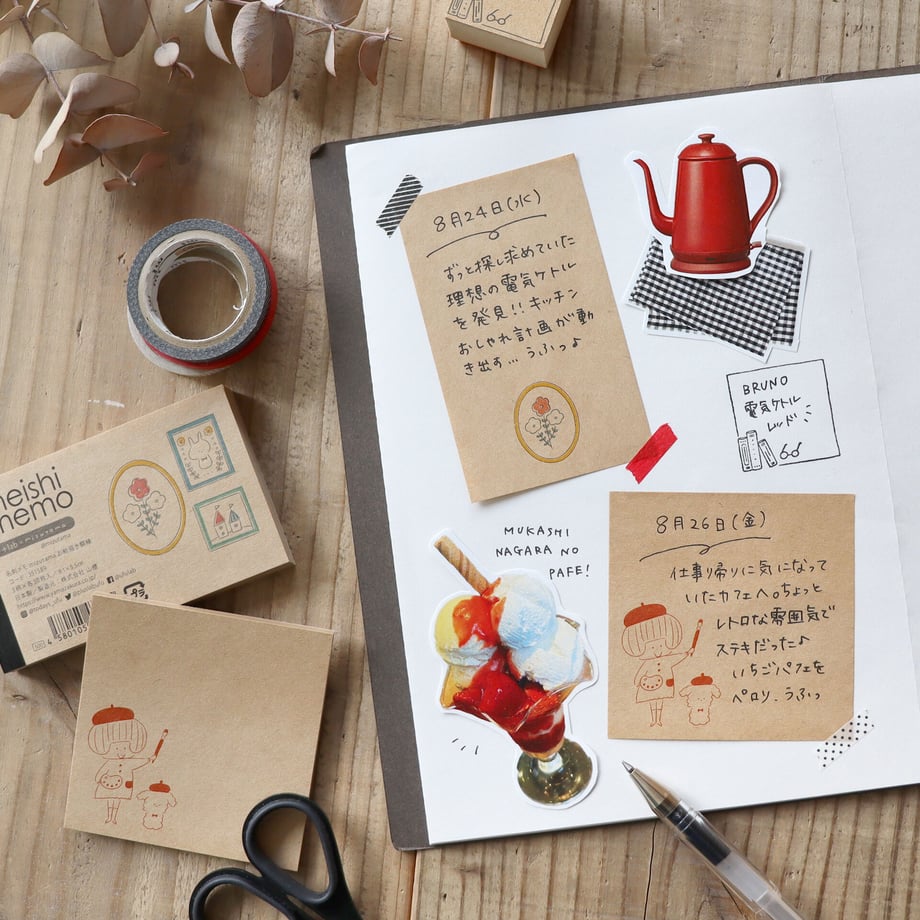 8月24日(水)
ずっと探し求めていた
理想の電気ケトル
を発見!!キッチン
おしゃれ計画が動
き出す…うふっ♪
BRUNO
電気ケトル
レッド
MUKASHI
NAGARA NO
PAFE!
8月26日(金)
仕事帰りに気になって
いたカフェへ。ちょっと
レトロな雰囲気で
ステキだった♪
いちごパフェを
ペロリ。うふっ
meishi
memo
+lab × mizutama
@mizutama